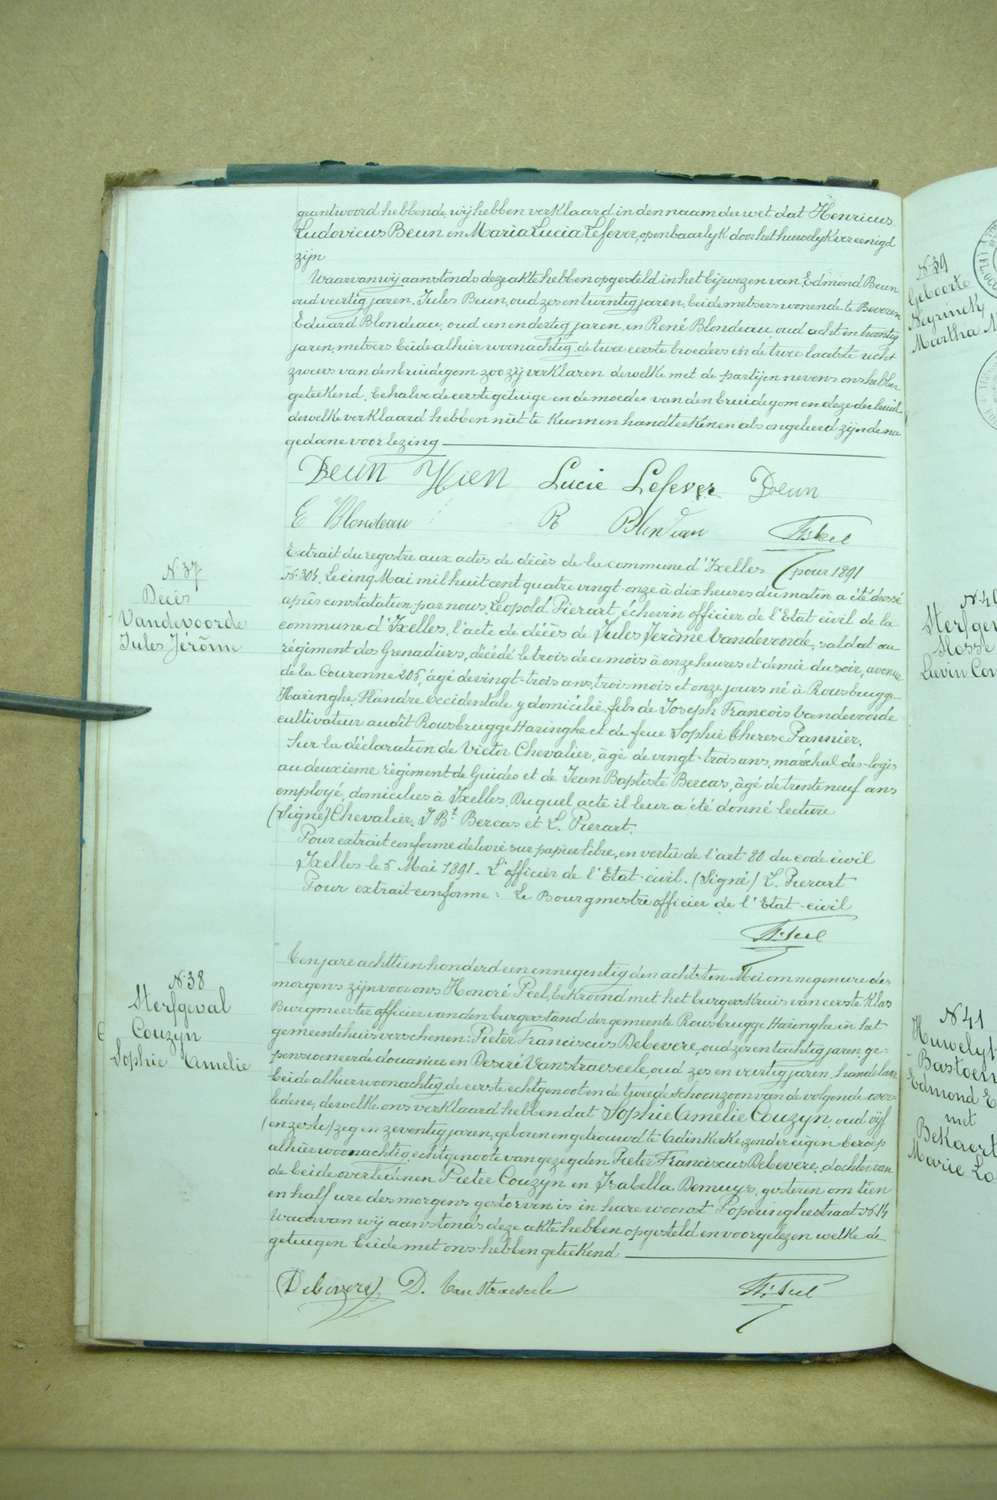 geantwoord hebbende, wij hebben verklaard in den naam der wet dat Henricus
Ludovicus Beun en Maria Lucia Lefever, openbaarlijk door het huwelijk vereenigd
zijn
Waarvan wij aanstonds deze akte hebben opgesteld in het bijwezen van Edmond Beun
oud veertig jaren, Jules Beun, oud zes en twintig jaren, beide metsers wonende te Beveren
Eduard Blondeau, oud een en dertig jaren, en René Blondeau oud acht en twintig
jaren, metsers beide alhier woonachtig, de twee eerste broeders en de twee laatste
van den bruidegom zoo zij verklaren dewelke met de partijen nevens ons hebben
geteekend, behalve de eerste getuige en de moeder van den bruidegom en deze der bruid
dewelke verklaard hebben niet te kunnen handteekenen als ongeleerd zijnde na
gedane voorlezing
Beun Hen Lucie Lefever Beun
E Blondeau R Blondeau H. Peel
Extrait du registre aux actes de décès de la commune d'Ixelles pour 1891
N. 304. Le cinq Mai mil huit cent quatre vingt-onze à dix heures du matin a été dressé
après constatation par nous, Léopold Pierart, échevin officier de l'Etat civil de la
commune d'Ixelles, l'acte de décès de Jules Jérôme Vandevoorde, soldat au
régiment des Grenadiers, décédé le trois de ce mois à onze heures et demie du soir, avenue
de la Couronne 205, âgé de vingt-trois ans, trois mois et onze jours né à Rousbrugge-
Haringhe, Flandre Occidentale y domicilié, fils de Joseph François Vandevoorde
cultivateur audit Rousbrugge Haringhe et de feue Sophie Therese Pannier.
Sur la déclaration de Victor Chevalier, âgé de vingt-trois ans, maréchal-des-logis
au deuxième régiment de Guides et de Jean Baptiste Bercas, âgé de trente neuf ans
employé, domiciliés à Ixelles. Duquel acte il leur a été donné lecture
(Signé) Chevalier, J Bt Bercas et L. Pierart.
Pour extrait conforme délivré sur papier libre, en vertu de l'art 80 du code civil
Ixelles le 5 Mai 1891. L'officier de l'Etat-civil. (Signé) L. Pierart
Pour extrait conforme: Le Bourgmestre officier de l'Etat-civil
H. Peel
N. 37
Décès
Vandevoorde
Jules Jérôme
Ten jare achttien honderd een en negentig den achtsten Mei om negen ure des
morgens zijn voor ons Honoré Peel, bekroond met het burgerkruis van eerste klas
Burgmeester officier van den burgerstand der gemeente Rousbrugge Haringhe in het
gemeentehuis verschenen: Pieter Franciscus Debevere, oud zes en tachtig jaren, ge-
pensioneerde douanier en Desiré Vanstraeseele, oud zes en veertig jaren, handelaar
beide alhier woonachtig de eerste echtgenoot en de tweede schoonzoon van de volgende over-
ledene, dewelke ons verklaard hebben dat Sophie Amelie Couzyn, oud vijf
en zeventig jaren, geboren en gehuwd te Adinkerke zonder eigen beroep
alhier woonachtig, echtgenoote van gezegden Pieter Franciscus Debevere, dochter van
de beide overledenen Pieter Couzyn en Isabella Demuys, gisteren om tien
en half ure des morgens gestorven is in hare woonst Poperinghestraat N. 14
Waarvan wij aanstonds deze akte hebben opgesteld en voorgelezen welke de
getuigen beide met ons hebben geteekend
Debevere D. Vanstraeseele H. Peel
N. 38
Sterfgeval
Couzyn
Sophie Amelie
N. 39
Geboorte
Neyrinck
Martha M
Sterfgev
Liévin Cor
N. 41
Huwelyk
Bastoen
Edmond E
met
Bekaert
Marie Lo